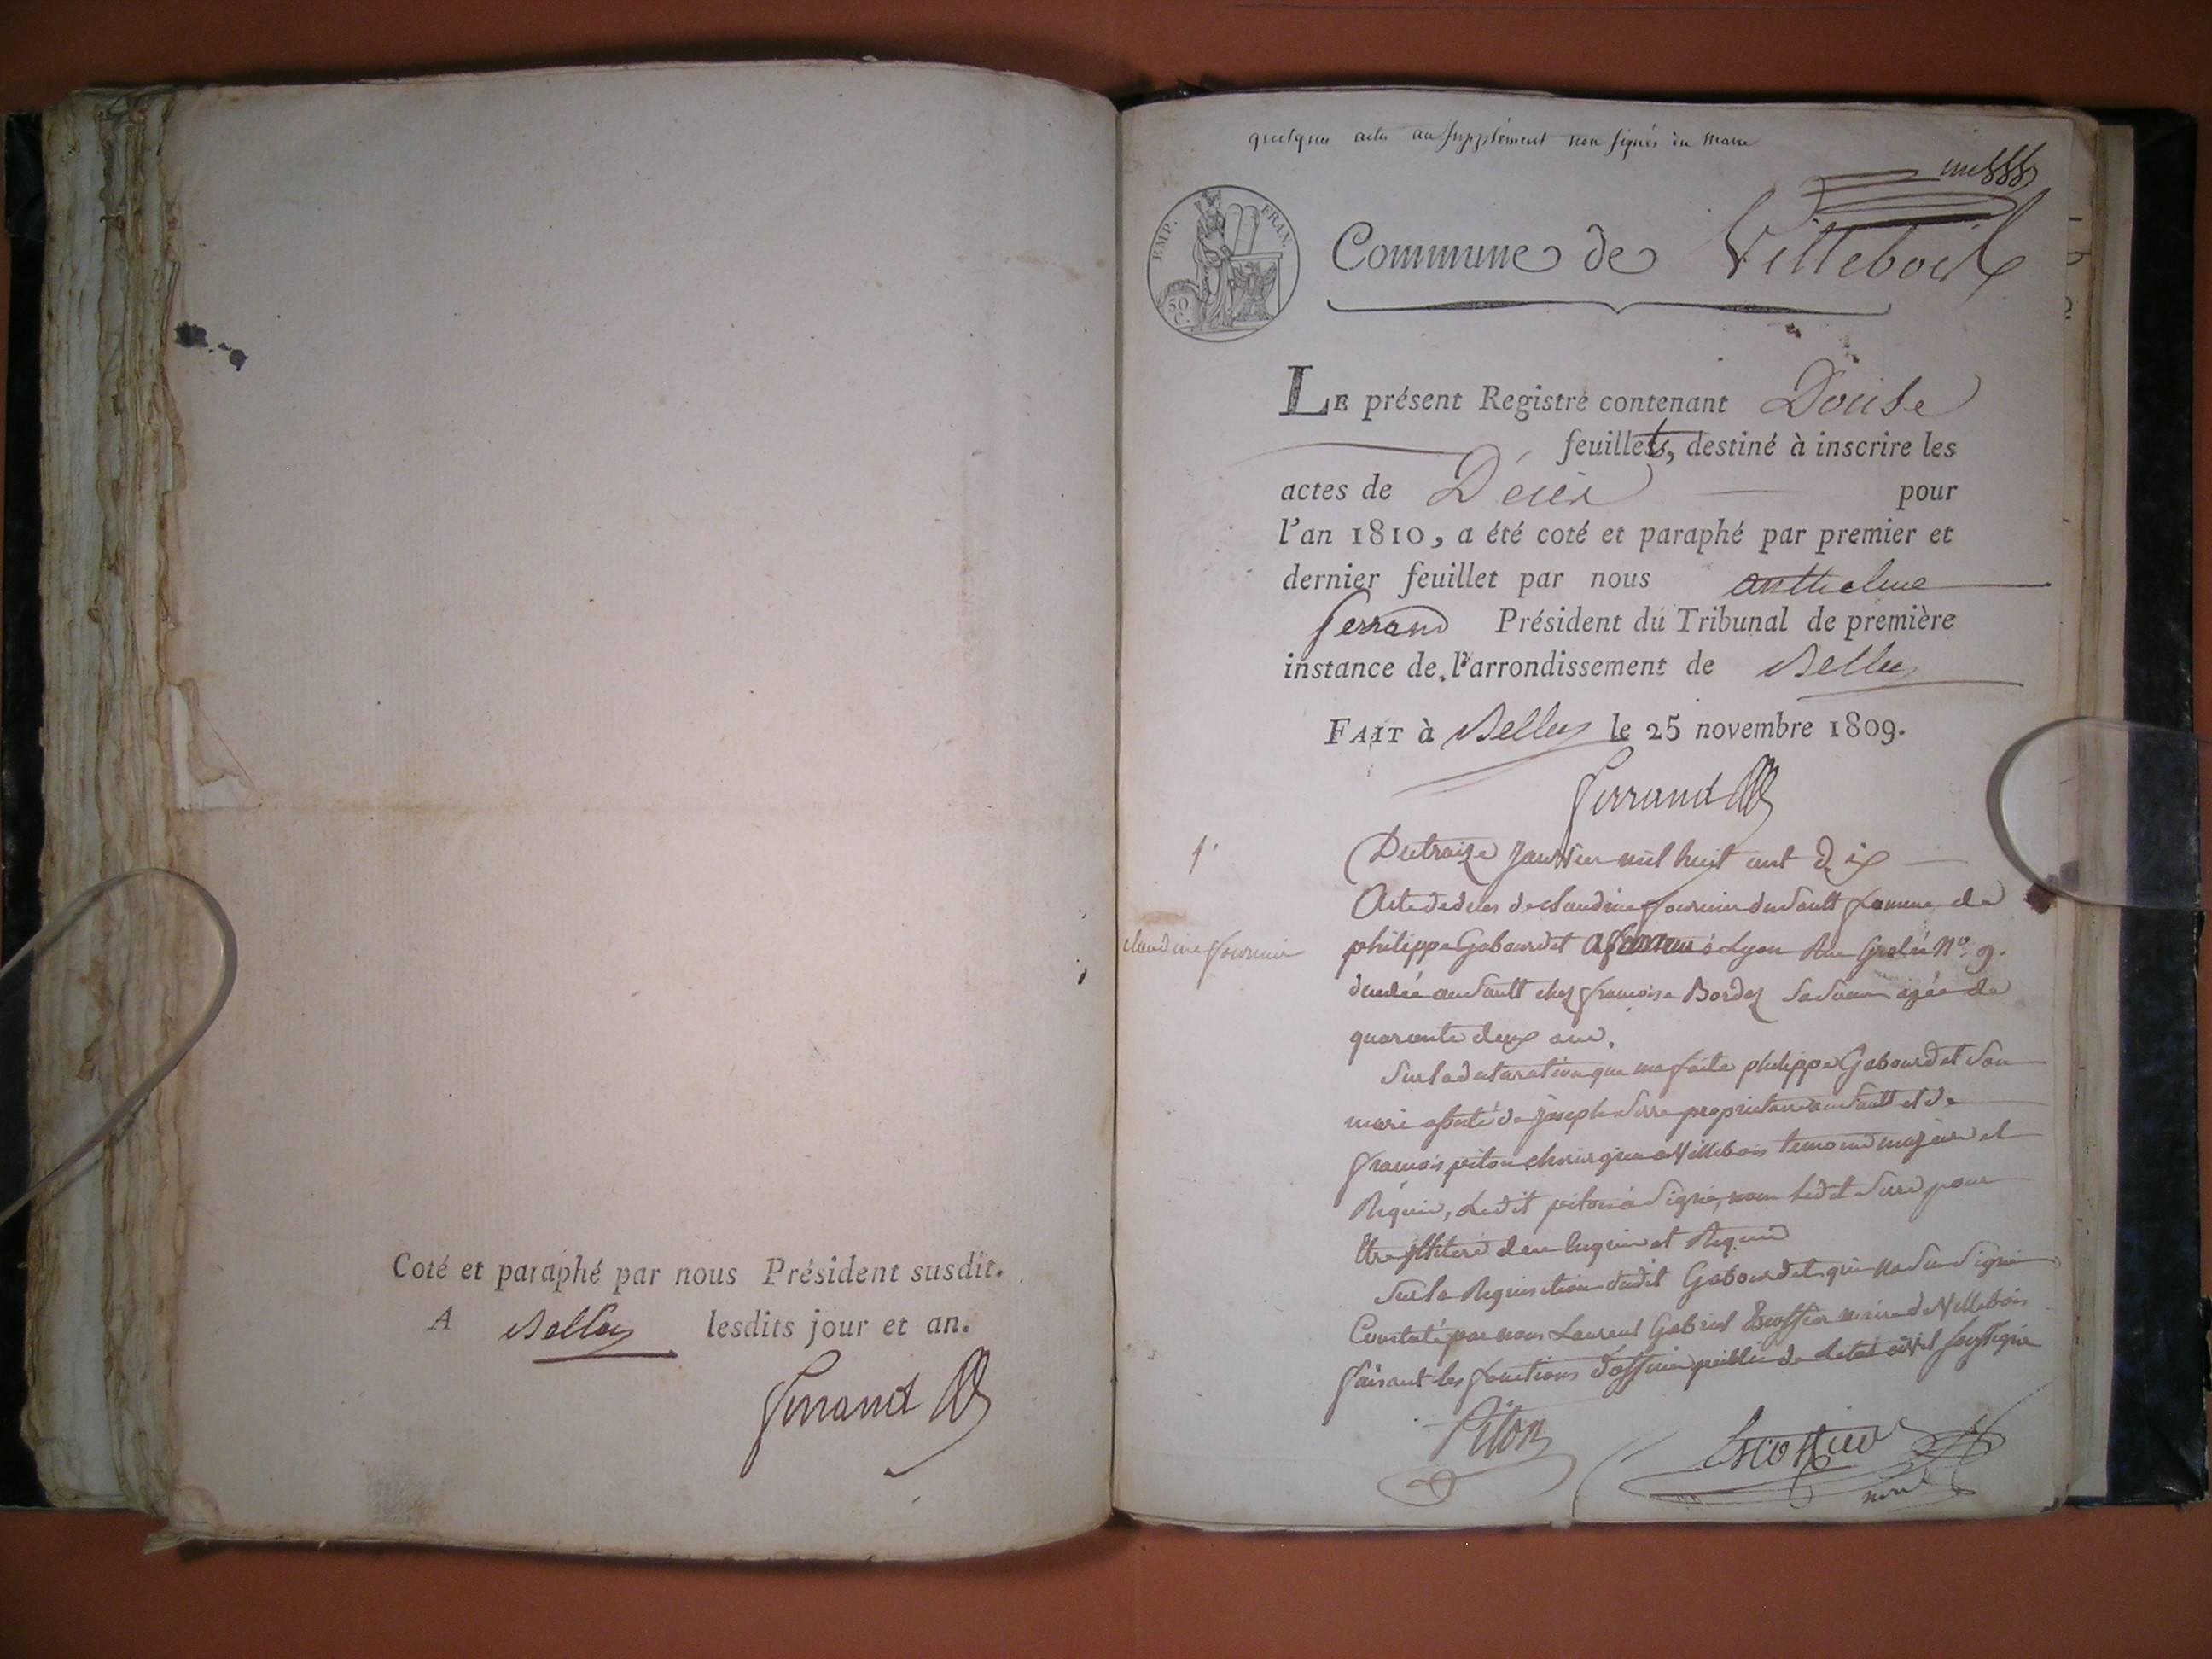 Coté et paraphé par nous Président susdit.
A Belley lesdits jour et an.
Ferrand
quelques actes au supplément non signés du maire
EMP. FRAN.
50 C.
Commune de Villebois
LE présent Registre contenant Douse
feuillets, destiné à inscrire les
actes de Décès pour
l'an 1810, a été coté et paraphé par premier et
dernier feuillet par nous anthelme
ferrand Président du Tribunal de première
instance de l'arrondissement de Belley
FAIT à Belley le 25 novembre 1809.
Ferrand
1.
Du traize janvier mil huit cent dix
claudine fournier
Acte de deces de claudine fournier du Sault femme de
philippe Gabourdet à Lyon Rue Grolée N.o 9.
décédée au Sault chez françoise Bordez sa agée de
quarante deux ans.
Sur la declaration que ma faite philippe Gabourdet son
mari assisté de joseph Serre proprietaire au Sault et de
françois piton chirurgien a Villebois temoins majeurs et
Requis, Ledit piton a signé, non ledit Serre pour
être illiteré de ce enquis et Requis
Sur la Requisition dudit Gabourdet qui na su signer
Constaté par nous Laurent Gabriel Escoffier maire de Villebois
faisant les fonctions d'officier public de letat civil soussigné
Piton
Escoffier
maire